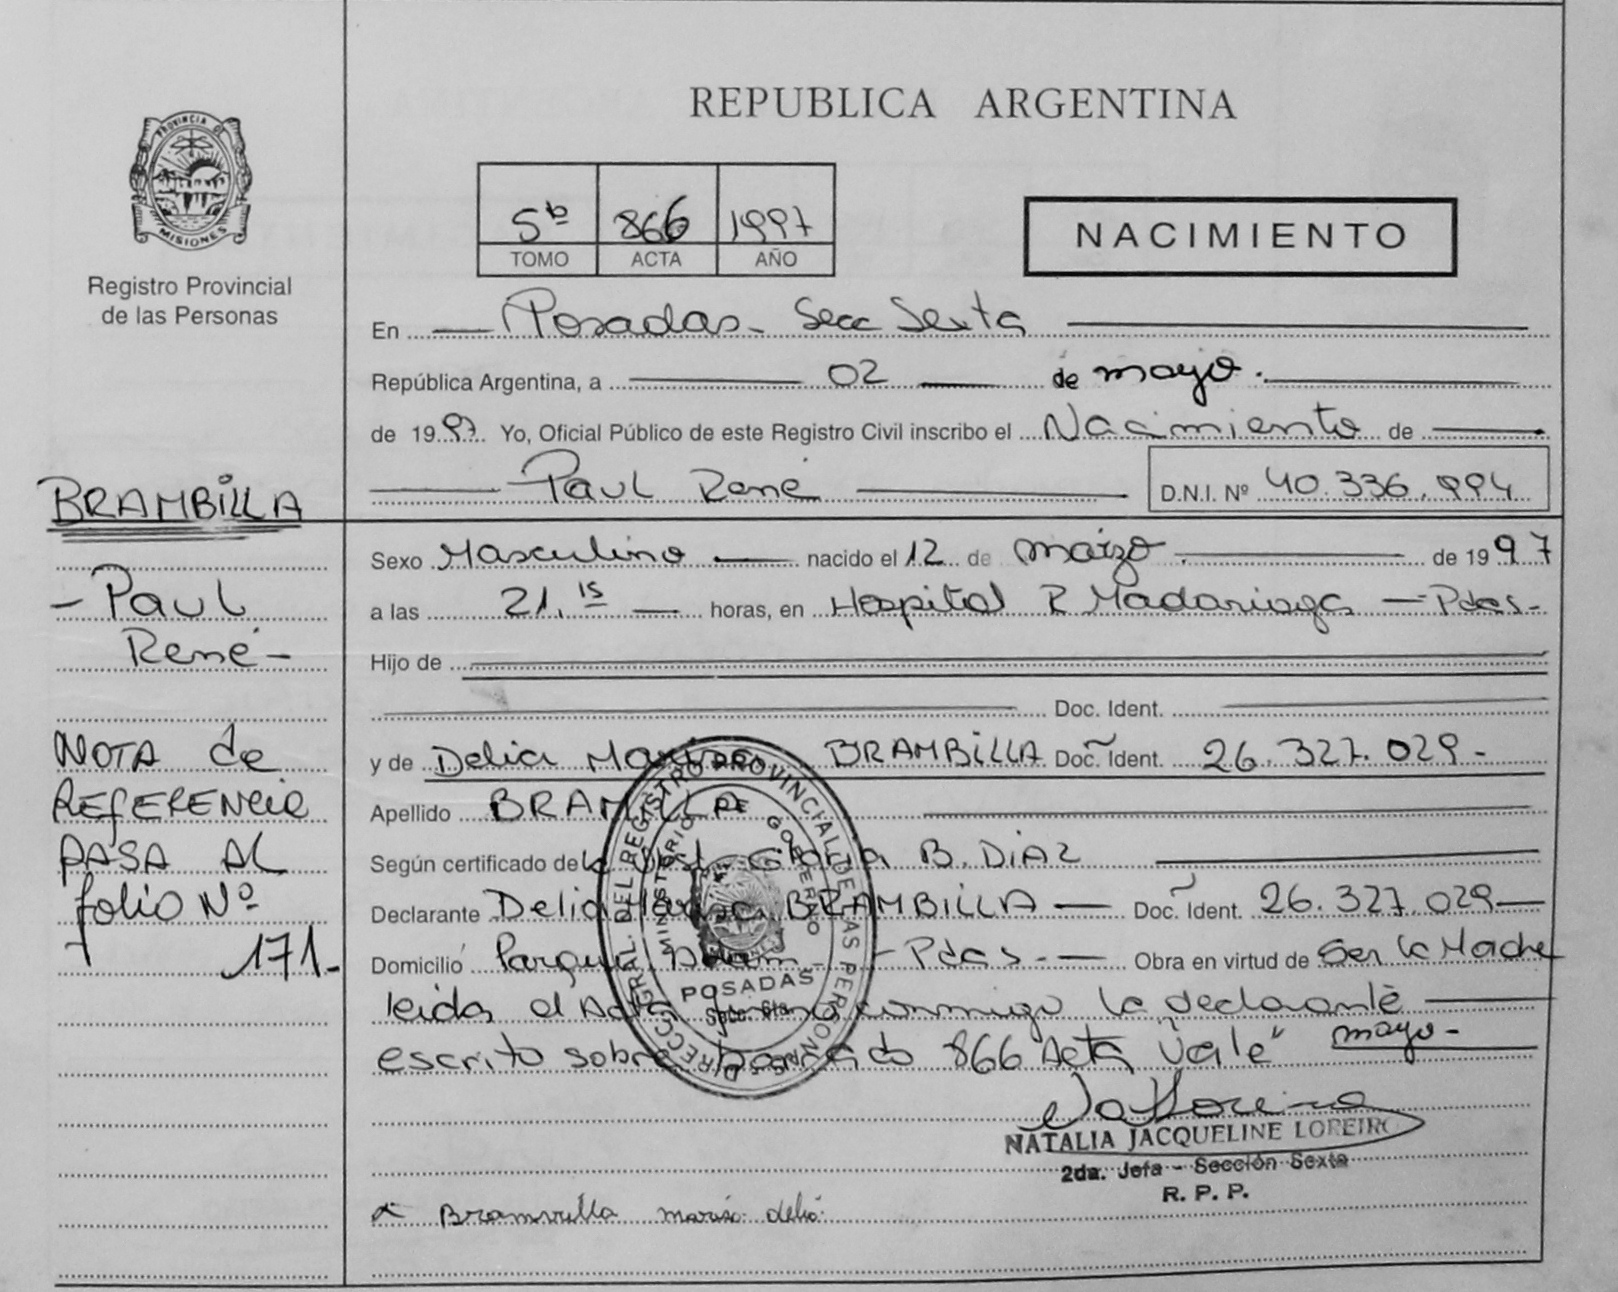 REPUBLICA ARGENTINA
PROVINCIA DE
MISIONES
Registro Provincial
de las Personas
5º 866 1997
TOMO ACTA AÑO
NACIMIENTO
En Posadas - Secc Sexta
República Argentina, a 02 de mayo.
de 1997. Yo, Oficial Público de este Registro Civil inscribo el Nacimiento de
Paul René
D.N.I. Nº 40.336.994
BRAMBILLA
- Paul
René -
NOTA de
REFERENCIA
PASA AL
folio Nº
171.-
Sexo Masculino nacido el 12 de marzo de 1997
a las 21.15 horas, en Hospital R Madariaga - Pdas.-
Hijo de
Doc. Ident.
y de Delia Marisa BRAMBILLA Doc. Ident. 26.327.029.-
Apellido BRAMBILLA
Según certificado de la Obst. Gloria B. DIAZ
Declarante Delia Marisa BRAMBILLA Doc. Ident. 26.327.029
Domicilio Parque - Pdas.- Obra en virtud de Ser la Madre
leida el Acta firma conmigo la declarante
escrito sobre borrado 866 Acta Vale" mayo-
DIRECC. GRAL. DEL REGISTRO PROVINCIAL DE LAS PERSONAS
MINISTERIO DE GOBIERNO
POSADAS
Secc. 6ta.
NATALIA JACQUELINE LOREIRO
2da. Jefa - Sección Sexta
R. P. P.
Bramvilla delia